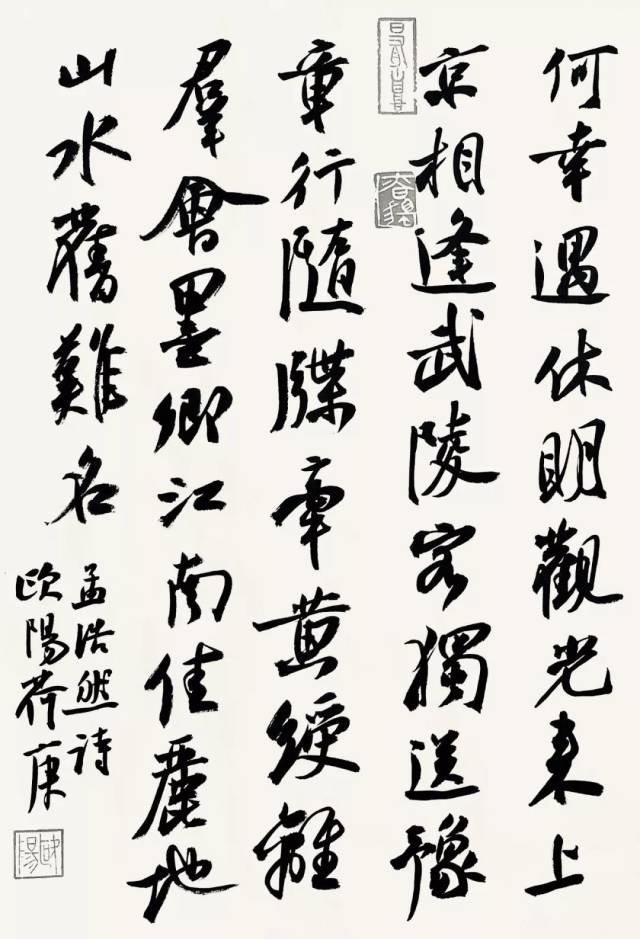 何幸遇休明觀光来上
京相逢武陵客獨送豫
章行隨牒牽黄綬離
羣會墨卿江南佳麗地
山水舊難名
孟浩然詩
歐陽荷庚
歐陽